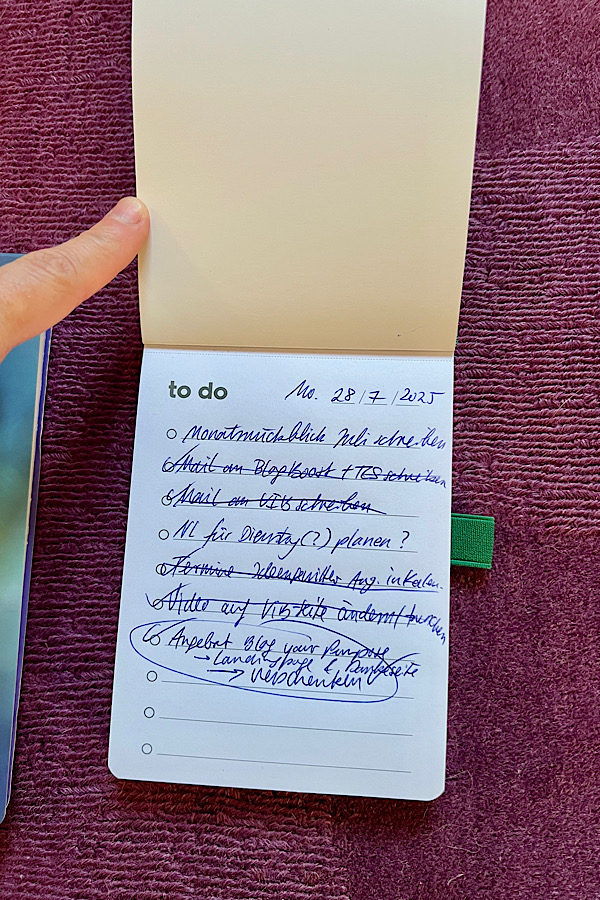 to do Mo. 28/7/2025
Monatsrückblick Juli schreiben
Mail an BlogBoost + TCS schreiben
Mail an VIB schreiben
NL für Dienstag(?) planen?
Termine Ideenpinsler Aug. in Kalen.
Video auf VIB Seite ändern/tauschen
Angebot Blog your Purpose
→ Landingpage & Dankeseite
→ Verschenken